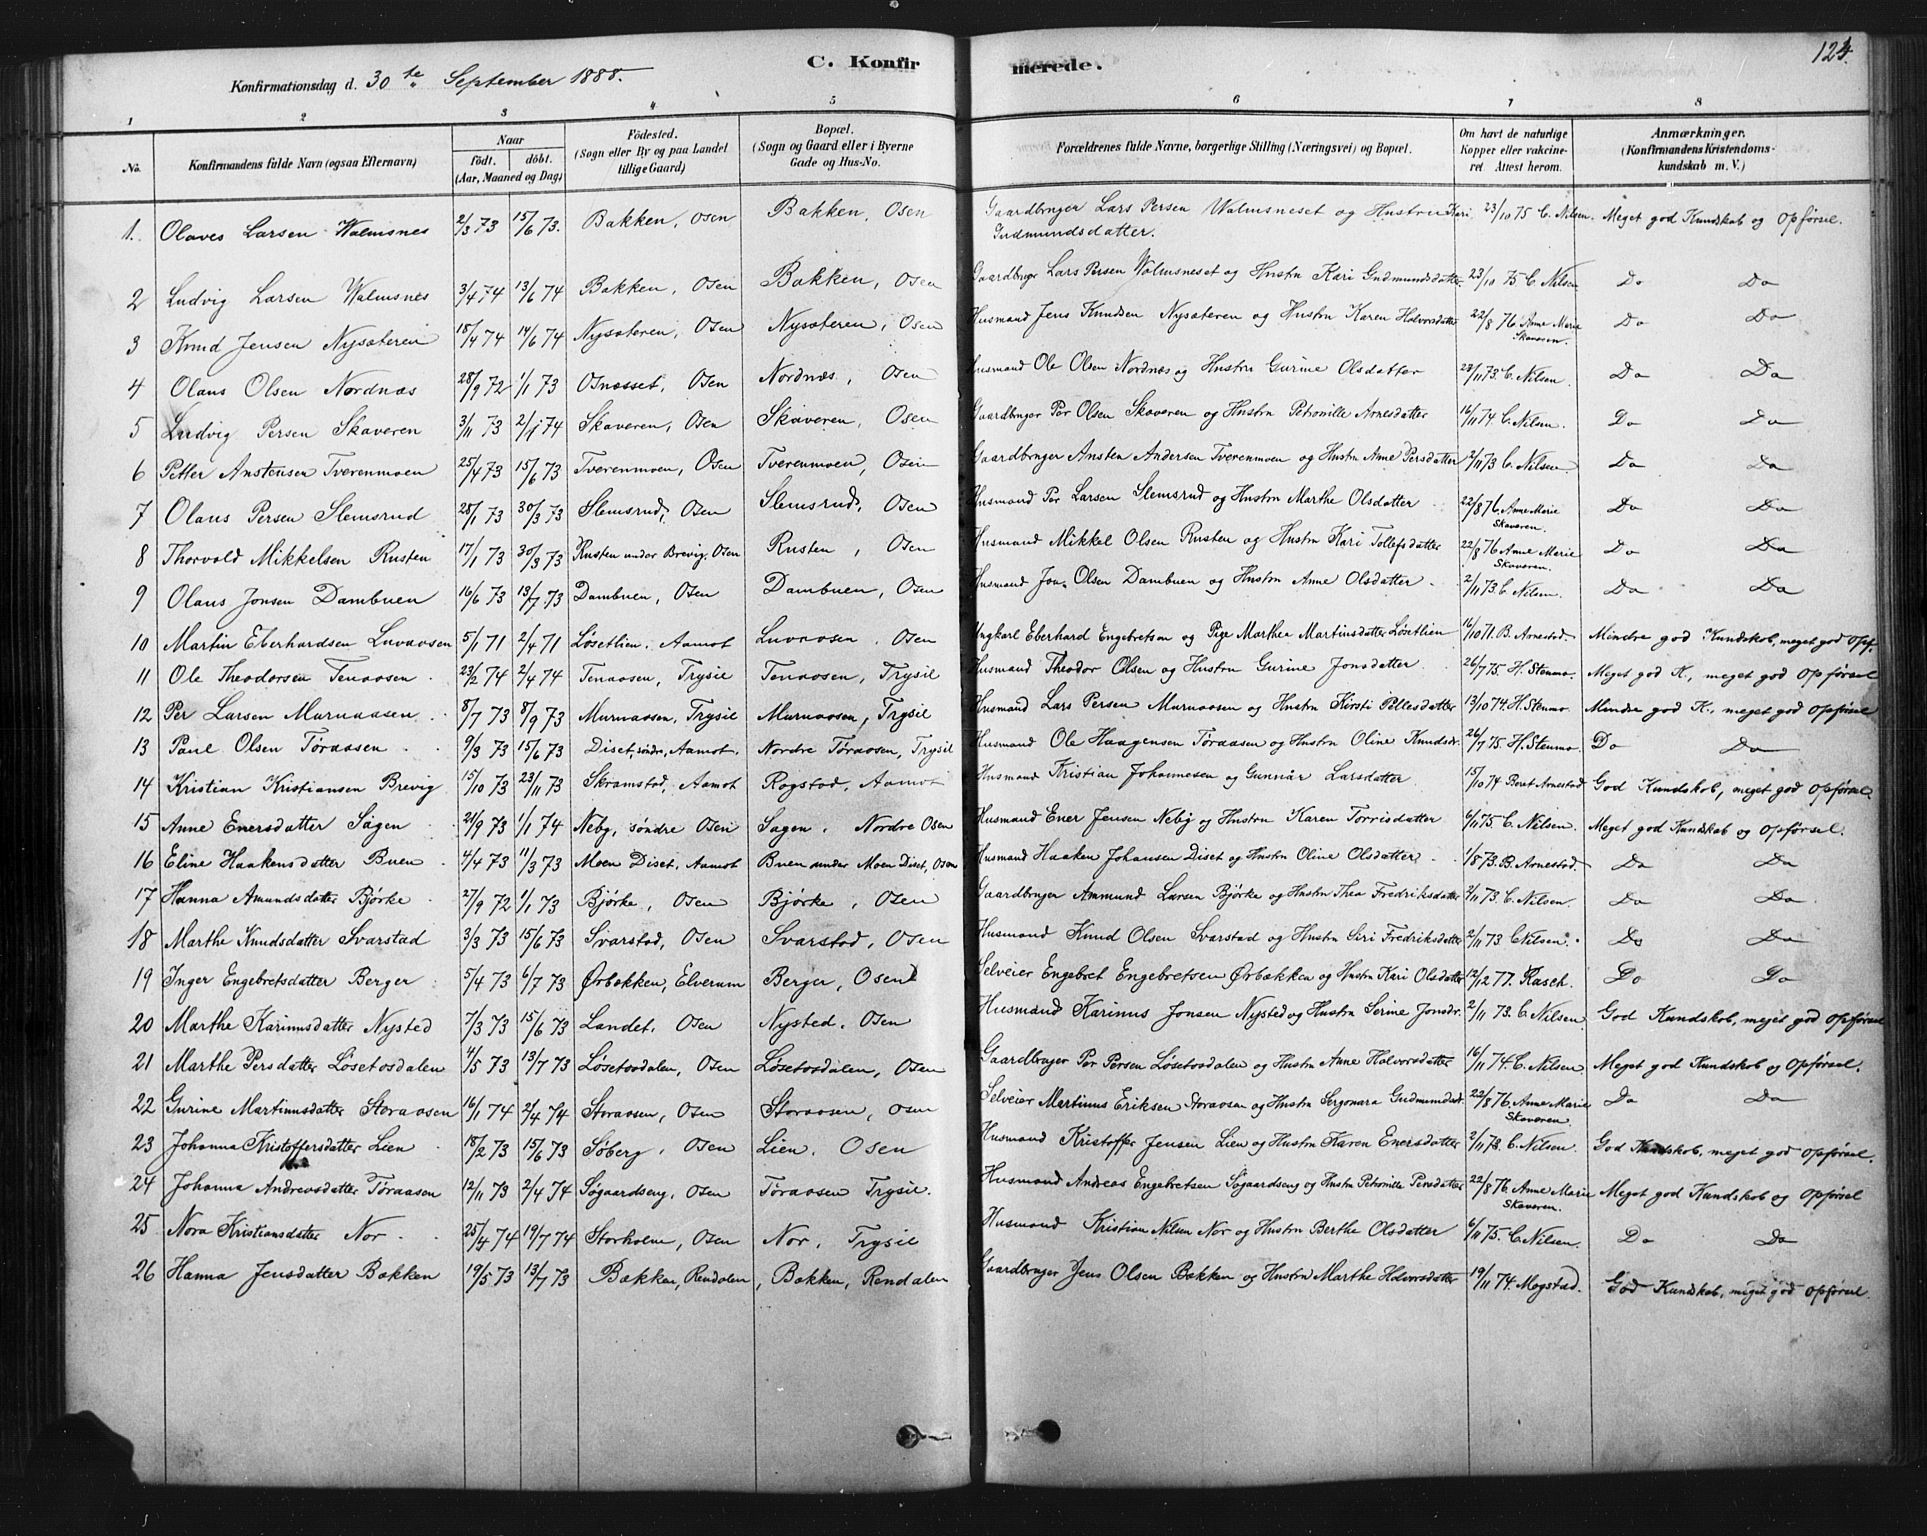 124.
C. Konfirmerede.
Konfirmationsdag d. 30te September 1888.
1 2 3 4 5 6 7 8
No. Konfirmandens fulde Navn (ogsaa Efternavn) Naar født. døbt. (Aar, Maaned og Dag) Födested. (Sogn eller By og paa Landet tillige Gaard) Bopæl. (Sogn og Gaard eller i Byerne Gade og Hus-No. Forældrenes fulde Navne, borgerlige Stilling (Næringsvei) og Bopæl. Om havt de naturlige Kopper eller vakcineret Attest herom. Anmærkninger. (Konfirmandens Kristendomskundskab m. V.)
1. Olaves Larsen Walmsnes 2/3 73 15/6 73. Bakken, Osen Bakken, Osen Gaardbruger Lars Persen Walmsneset og Hustru Kari Gudmundsdatter. 23/10 75 C. Nilsen. Meget god Kundskab og Opførsel.
2 Ludvig Larsen Walmsnes 3/4 74 13/6 74 Bakken, Osen Bakken, Osen Gaardbruger Lars Persen Walmsneset og Hustru Kari Gudmundsdatter. 23/10 75 C. Nilsen Do Do
3 Knud Jensen Nysæteren 18/4 74 14/6 74 Nysæteren, Osen Nysæteren, Osen Husmand Jens Knudsen Nysæteren og Hustru Karen Halvorsdatter 22/8 76 Anne Marie Skaveren. Do Do
4 Olaus Olsen Nordnæs 28/9 72 1/1 73 Osnæsset, Osen Nordnæs, Osen Husmand Ole Olsen Nordnæs og Hustru Gurine Olsdatter 23/11 73. C. Nilsen. Do Do
5 Ludvig Persen Skaveren 3/11 73 2/1 74 Skaveren, Osen Skaveren, Osen Gaardbruger Per Olsen Skaveren og Hustru Petronille Arnesdatter 16/11 74. C. Nilsen. Do Do
6 Petter Anstensen Tverenmoen 25/4 73 15/6 73 Tverenmoen, Osen Tverenmoen, Osen Gaardbruger Ansten Andersen Tverenmoen og Hustru Anne Persdatter 2/11 73 C. Nilsen Do Do
7 Olaus Persen Slemsrud 28/1 73 30/3 73 Slemsrud, Osen Slemsrud, Osen Husmand Per Larsen Slemsrud og Hustru Marthe Olsdatter 22/8 76. Anne Marie Skaveren. Do Do
8 Thorvald Mikkelsen Rusten 17/1 73 30/3 73 Rusten under Brevig, Osen Rusten, Osen Husmand Mikkel Olsen Rusten og Hustru Kari Tollefsdatter 22/8 76 Anne Marie Skaveren. Do Do
9 Olaus Jonsen Dambuen 16/6 73 13/7 73 Dambuen, Osen Dambuen, Osen Husmand Jon Olsen Dambuen og Hustru Anne Olsdatter 2/11 73. C. Nilsen. Do Do
10 Martin Eberhardsen Luvaasen 5/1 71 2/4 71 Løsetlien, Aamot Luvaasen, Osen Ungkarl Eberhard Engebretsen og Pige Marthea Martinsdatter Løsetlien 16/10 71. B. Arnestad. Mindre god Kundskab, meget god Opf.
11 Ole Theodorsen Tenaasen 23/2 74 2/4 74 Tenaasen, Trysil Tenaasen, Trysil Husmand Theodor Olsen og Hustru Gurine Jonsdatter 26/7 75. H. Stenmo. Meget god K., meget god Opførsel
12 Per Larsen Murnaasen 8/7 73 8/9 73 Murnaasen, Trysil Murnaasen, Trysil Husmand Lars Persen Murnaasen og Hustru Kirsti Pellesdatter 13/10 74. H. Stenmo. Mindre god K., meget god Opførsel
13 Paul Olsen Tøraasen 9/3 73 15/6 73 Diset, søndre, Aamot. Nordre Tøraasen, Trysil Husmand Ole Haagensen Tøraasen og Hustru Oline Knudsdr. 26/7 75. H. Stenmo. Do Do
14 Kristian Kristiansen Brevig 15/10 73 23/11 73 Skramstad, Aamot Rogstad, Aamot Husmand Kristian Johannesen og Gunnar Larsdatter 15/10 74 Beret Arnestad God Kundskab, meget god Opførsel.
15 Anne Enersdatter Sagen 21/9 73 1/1 74 Neby, søndre Osen Sagen, Nordre Osen Husmand Ener Jensen Neby og Hustru Karen Torrisdatter 6/11 75. C. Nilsen. Meget god Kundskab og Opførsel.
16 Eline Haakensdatter Buen 4/4 73 11/3 73 Moen Diset, Aamot Buen under Moen Diset, Osen Husmand Haaken Johansen Diset og Hustru Oline Olsdatter 1/8 73. B. Arnestad. Do Do
17 Hanna Amundsdatter Bjørke 27/9 72 1/1 73 Bjørke, Osen Bjørke, Osen Gaardbruger Ammund Larsen Bjørke og Hustru Thea Fredriksdatter 2/11 73. C. Nilsen. Do Do
18 Marthe Knudsdatter Svarstad 3/3 73 15/6 73 Svarstad, Osen Svarstad, Osen Husmand Knud Olsen Svarstad og Hustru Siri Fredriksdatter 2/11 73 C Nilsen. Do Do
19 Inger Engebretsdatter Berger 5/4 73 6/7 73 Ørbækken, Elverum Berger, Osen Selveier Engebret Engebretsen Ørbækken og Hustru Kari Olsdatter 12/12 77. Rasch. Do Do
20 Marthe Karinusdatter Nysted 7/3 73 15/6 73 Landet, Osen Nysted, Osen Husmand Karinus Jonsen Nysted og Hustru Serine Jonsdr. 2/11 73. C. Nilsen. God Kundskab, meget god Opførsel
21 Marthe Persdatter Løsetosdalen 4/5 73 13/7 73 Løsetosdalen, Osen Løsetosdalen, Osen Gaardbruger Per Persen Løsetosdalen og Hustru Anne Halvorsdatter 16/11 74. C. Nilsen Meget god Kundskab og Opførsel.
22 Gurine Martinusdatter Storaasen 16/1 74 2/4 74 Storaasen, Osen Storaasen, Osen Selveier Martinus Eriksen Storaasen og Hustru Gudmundsdr. 22/8 76. Anne Marie Skaveren. Do Do
23 Johanna Kristoffersdatter Lien 18/2 73 15/6 73 Søberg, Osen Lien, Osen Husmand Kristoffer Jensen Lien og Hustru Karen Enersdatter 2/11 73. C. Nilsen. God Kundskab, meget god Opførsel.
24 Johanna Andreasdatter Tøraasen 12/11 73 2/4 74 Søgaardseng, Osen Tøraasen Trysil. Husmand Andreas Engebretsen Søgaardseng og Hustru Petronille Persdatter 22/8 76. Anne Marie Skaveren. Meget god Kundskab og Opførsel
25 Nora Kristiansdatter Nor 25/4 74 19/7 74 Storholm, Osen Nor, Trysil Husmand Kristian Nilsen Nor og Hustru Berthe Olsdatter 6/11 75. C. Nilsen. Do Do
26 Hanna Jensdatter Bakken 19/5 73 13/7 73 Bakken, Rendalen, Bakken, Rendalen Gaardbruger Jens Olsen Bakken og Hustru Marthe Halvorsdatter 19/11 74. Mogstad. God Kundskab, meget god Opførsel.